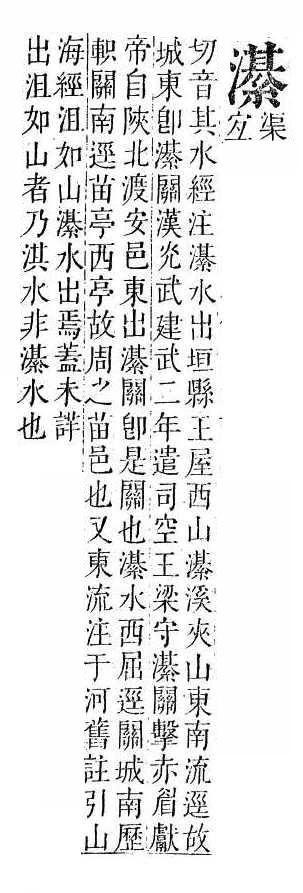 濝渠宜
切音其水經注濝水出垣縣王屋西山濝溪夾山東南流逕故
城東卽濝關漢光武建武二年遣司空王梁守濝關擊赤眉獻
帝自陝北渡安邑東出濝關卽是關也濝水西屈逕關城南歷
軹關南逕苗亭西亭故周之苗邑也又東流注于河舊註引山
海經沮如山濝水出焉蓋未詳
出沮如山者乃淇水非濝水也